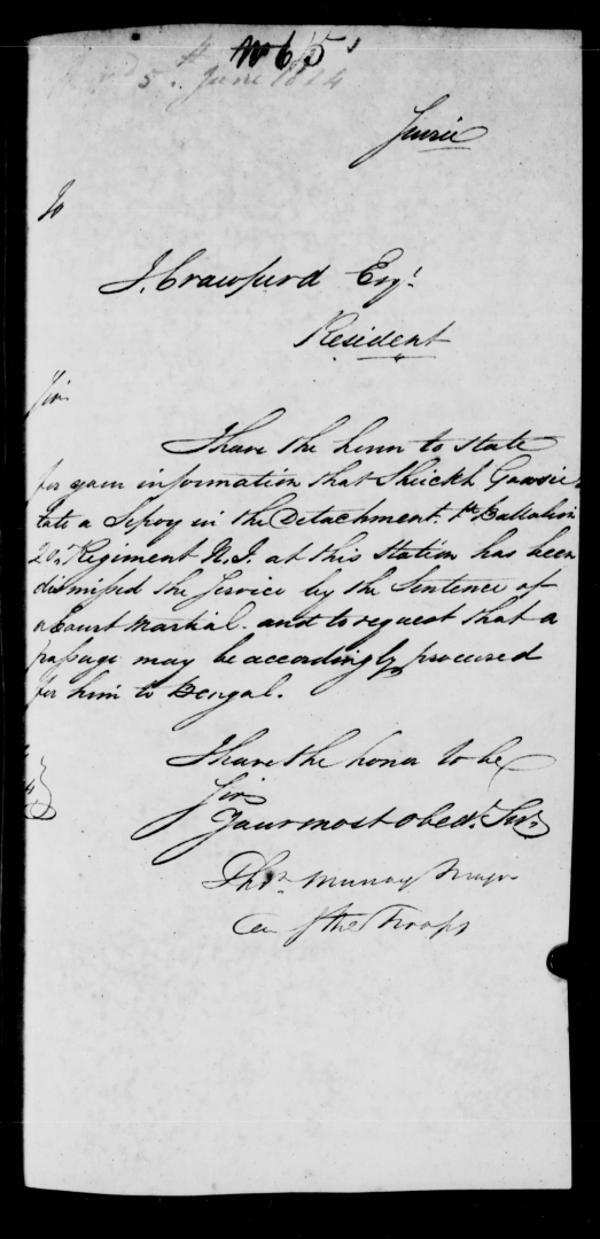 No 615
5th June 1824
To
J. Crawfurd Esqr
Resident
Sir
I have the honor to state
for your information that Shieckh
late a Sepoy in the Detachment 1st Battalion
20th Regiment N.I. at this Station has been
dismissed the Service by the Sentence of
a Court Martial. and to request that a
passage may be accordingly procured
for him to Bengal.
I have the honor to be
Sir
Your most obedt. Servt.
Thos. Murray Major
Troops